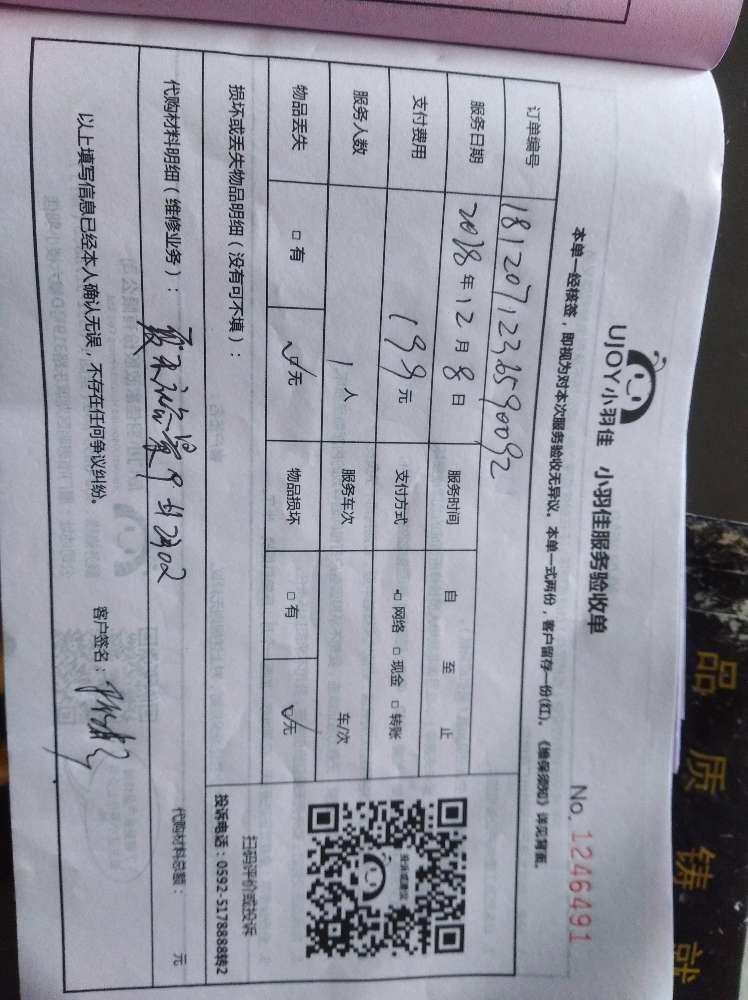 UJOY小羽佳 小羽佳服务验收单
No. 1246491
本单一经核签，即视为对本次服务验收无异议。本单一式两份，客户留存一份(红)。《维保须知》详见背面。
订单编号 1812071236590092
服务日期 2018年12月8日 服务时间 自 至 止
支付费用 199元 支付方式 网络 现金 转账
服务人数 1人 服务车次 车/次
物品丢失 有 无 物品损坏 有 无
损坏或丢失物品明细（没有可不填）：
扫码评价或投诉
投诉电话：0592-5178888转2
代购材料明细（维修业务）：
2702
代购材料总额： 元
以上填写信息已经本人确认无误，不存在任何争议纠纷。 客户签名：
品质铸就